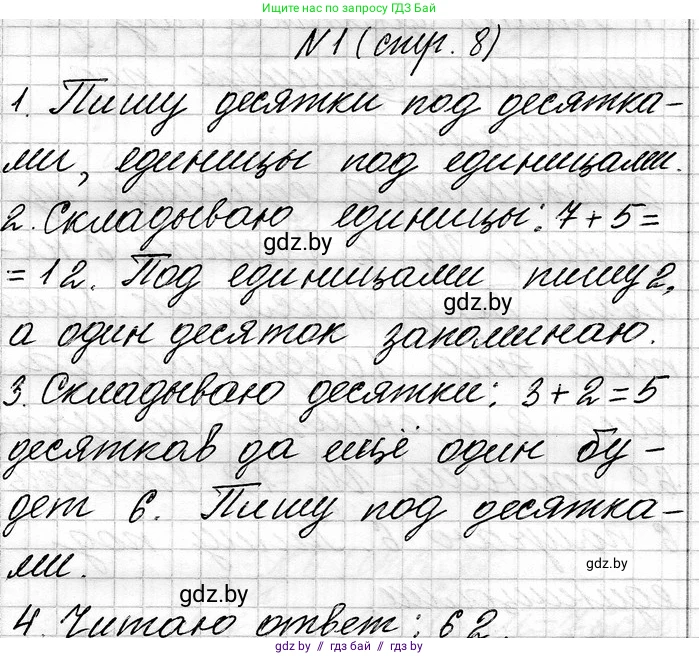 Пишите нам чтобы получить скачать приложение ГДЗ Бай
№1 (стр. 8)
1. Пишу десятки под десятка-
ми, единицы под единицами.
2. Складываю единицы: 7+5=
gdz.by
=12. Под единицами пишу 2,
gdz.by
а один десяток запоминаю.
3. Складываю десятки: 3+2=5
десятков да ещё один бу-
дет 6. Пишу под десятка-
ми.
gdz.by
gdz.by
4. Читаю ответ: 62.
gdz.by // гдз бай // гдз.бай